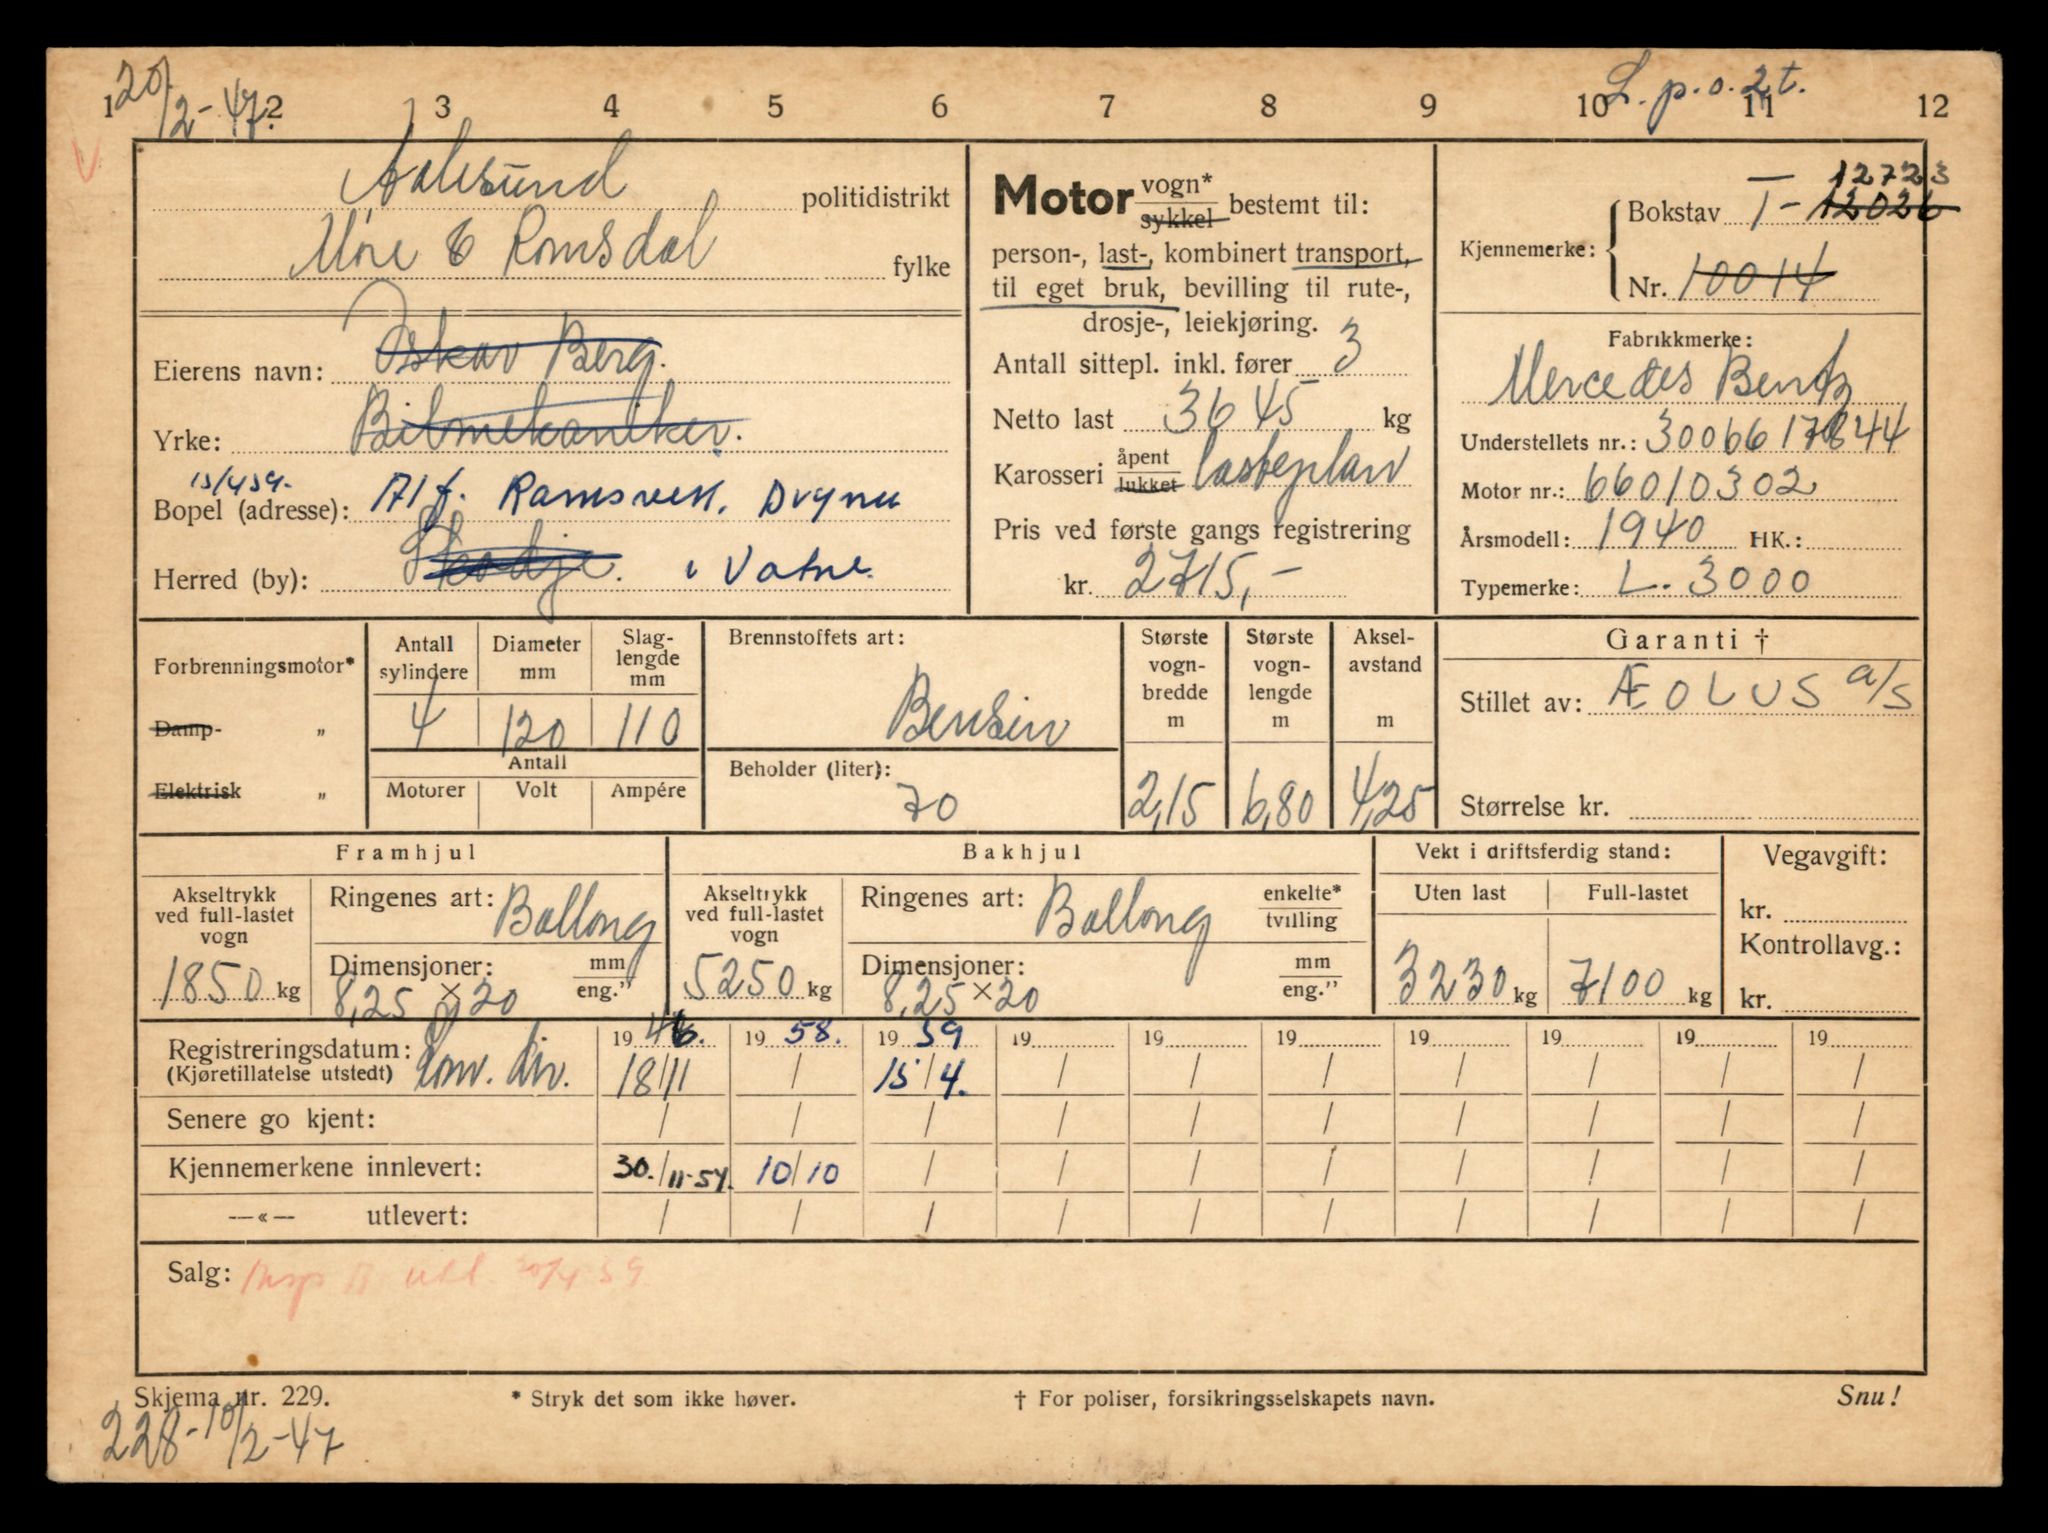 20/2-47.
L. p. o. 2 t.
1 2 3 4 5 6 7 8 9 10 11 12
V
Aalesund politidistrikt
Møre & Romsdal fylke
Eierens navn: Oskar Berg.
Yrke: Bilmekaniker.
15/4 59.
Bopel (adresse): Alf. Ramsvik, Drynu
Herred (by): Skodje. i Vatne.
Motor vogn* sykkel bestemt til:
person-, last-, kombinert transport,
til eget bruk, bevilling til rute-,
drosje-, leiekjøring.
Antall sittepl. inkl. fører 3
Netto last 3645 kg
Karosseri åpent lukket lasteplan
Pris ved første gangs registrering
kr. 2715,-
12723
Kjennemerke: Bokstav T- 12026
Nr. 10014
Fabrikkmerke:
Mercedes Bentz
Understellets nr.: 3006617844
Motor nr.: 66010302
Årsmodell: 1940 HK.:
Typemerke: L. 3000
Forbrenningsmotor*
Damp- „
Elektrisk „
Antall sylindere Diameter mm Slag-lengde mm
4 120 110
Antall
Motorer Volt Ampére
Brennstoffets art:
Bensin
Beholder (liter):
70
Største vogn-bredde m Største vogn-lengde m Aksel-avstand m
2,15 6,80 4,25
Garanti †
Stillet av: ÆOLUS a/s
Størrelse kr.
Framhjul
Akseltrykk ved full-lastet vogn
1850 kg
Ringenes art: Ballong
Dimensjoner: mm eng."
8,25 × 20
Bakhjul
Akseltrykk ved full-lastet vogn
5250 kg
Ringenes art: Ballong enkelte* tvilling
Dimensjoner: mm eng."
8,25 × 20
Vekt i driftsferdig stand:
Uten last Full-lastet
3230 kg 7100 kg
Vegavgift:
kr.
Kontrollavg.:
kr.
Registreringsdatum: 19 46. 19 58. 19 59 19 19 19 19 19 19 19
(Kjøretillatelse utstedt) 18/11 / 15/4. / / / / / / /
Senere go kjent: / / / / / / / / / /
Kjennemerkene innlevert: 30./11-54. 10/10 / / / / / / / /
—«— utlevert: / / / / / / / / / /
Salg: utl. 20/4 59
Skjema nr. 229. * Stryk det som ikke høver. † For poliser, forsikringsselskapets navn. Snu!
228-10/2-47